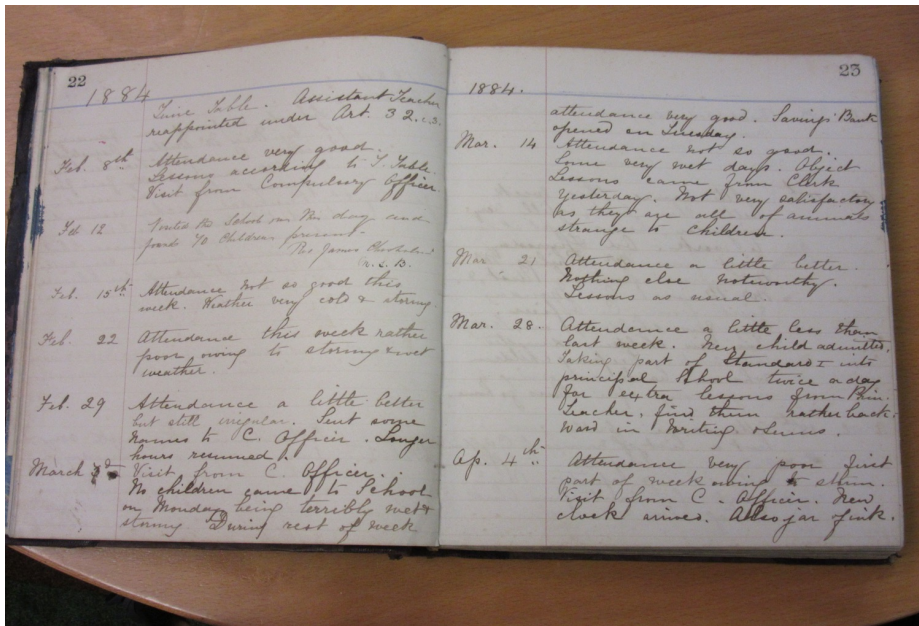 22
1884
Time Table. Assistant Teacher
reappointed under Art. 32.c.3.
Feb. 8th Attendance very good.
Lessons according to T. Table.
Visit from Compulsory Officer.
Feb 12 Visited the School on this day and
found 70 Children present.
James
Feb. 15th Attendance not so good this
week. Weather very cold & stormy.
Feb. 22 Attendance this week rather
poor owing to stormy & wet
weather.
Feb. 29 Attendance a little better
but still irregular. Sent some
names to C. Officer. Longer
hours resumed.
March Visit from C. Officer.
No children came to School
on Monday being terribly wet &
stormy. During rest of week
23
1884.
attendance very good. Savings Bank
opened on Tuesday.
Mar. 14 Attendance not so good.
Some very wet days. Object
Lessons came from Clerk
yesterday. Not very satisfactory
as they are all of animals
strange to children.
Mar 21 Attendance a little better.
Nothing else noteworthy.
Lessons as usual.
Mar. 28. Attendance a little less than
last week. New child admitted.
Taking part of Standard I into
principal School twice a day
for extra lessons from Prin.
Teacher. find them rather back-
ward in Writing & Sums.
Ap. 4th Attendance very poor first
part of week owing to storm.
Visit from C. Officer. New
clock arrived. Also jar of ink.